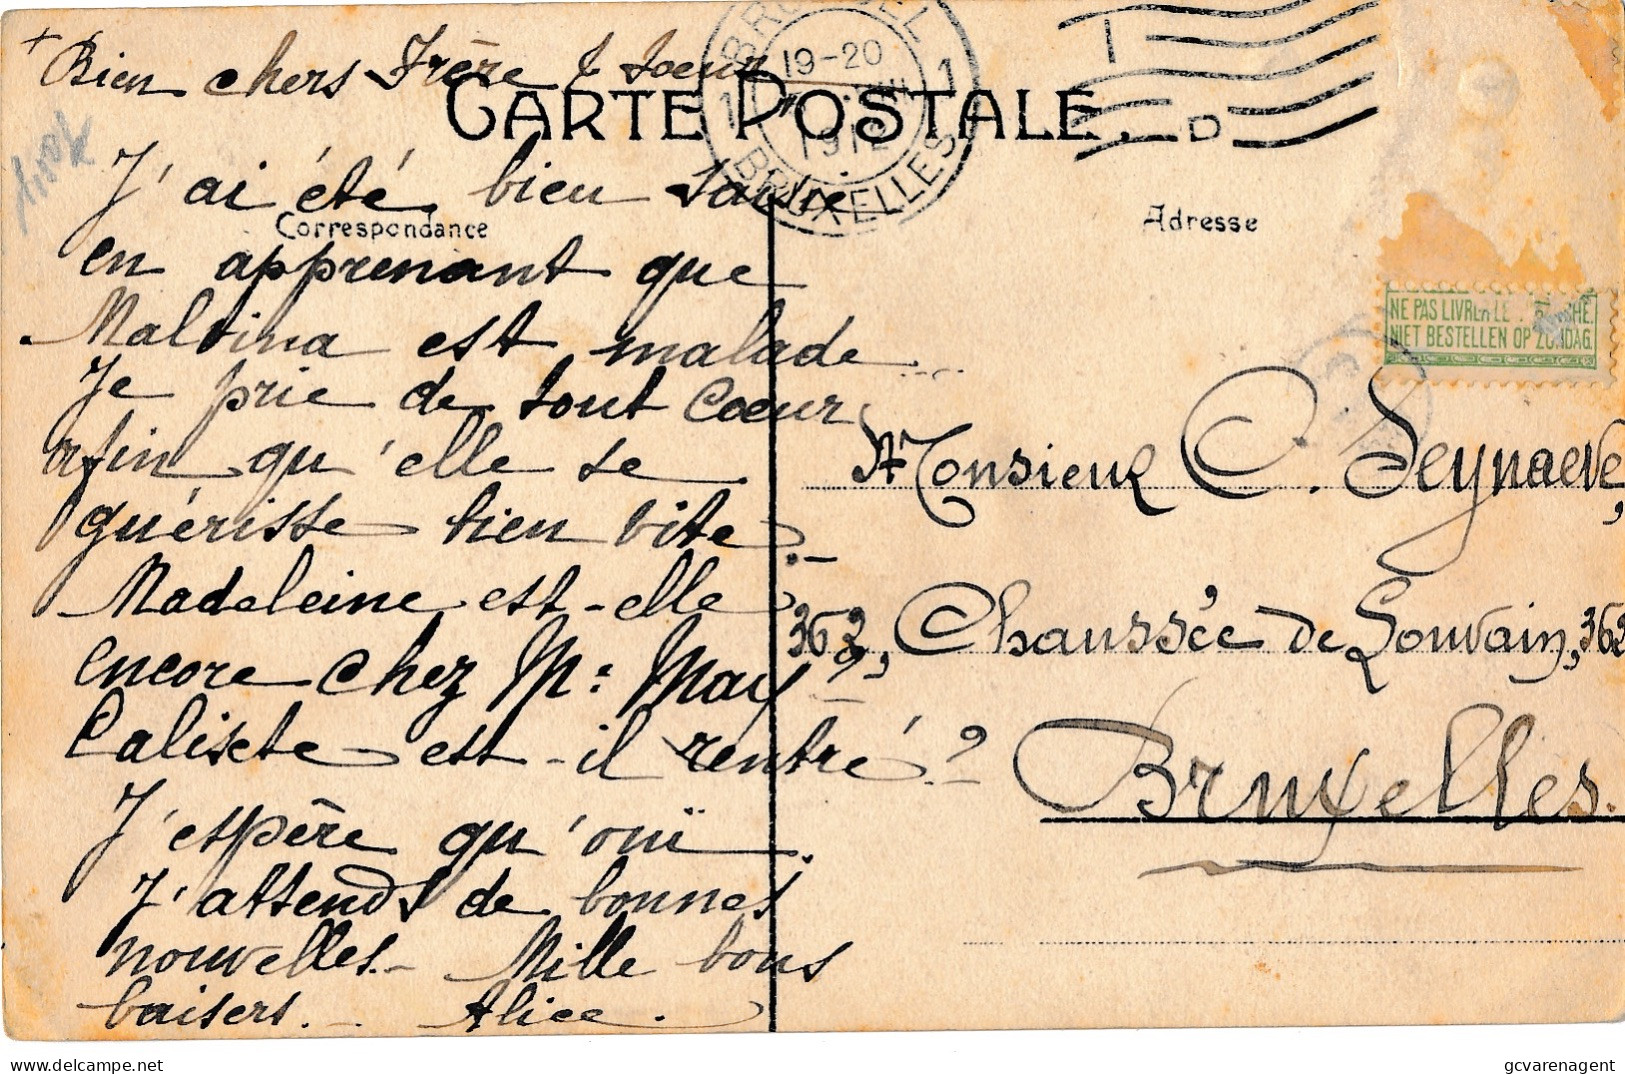 + Bien chers Frère & soeur
CARTE POSTALE.
J'ai été bien saisie
Correspondance
en apprenant que
Malvina est malade....
Je prie de tout Coeur
afin qu'elle se
guérisse bien vite.–
Madeleine est-elle
encore chez M: May ?
Calixte est-il rentré ?
J'espère qu'ouï.
J'attends de bonnes
nouvelles.– Mille bons
baisers.– Alice.
BRUSSEL
1 1
19-20
1912
BRUXELLES
D
Adresse
NE PAS LIVRER LE DIMANCHE.
NIET BESTELLEN OP ZONDAG.
A Monsieur C. Seynaeve,
362, Chaussée de Louvain, 362
Bruxelles.
gcvarenagent